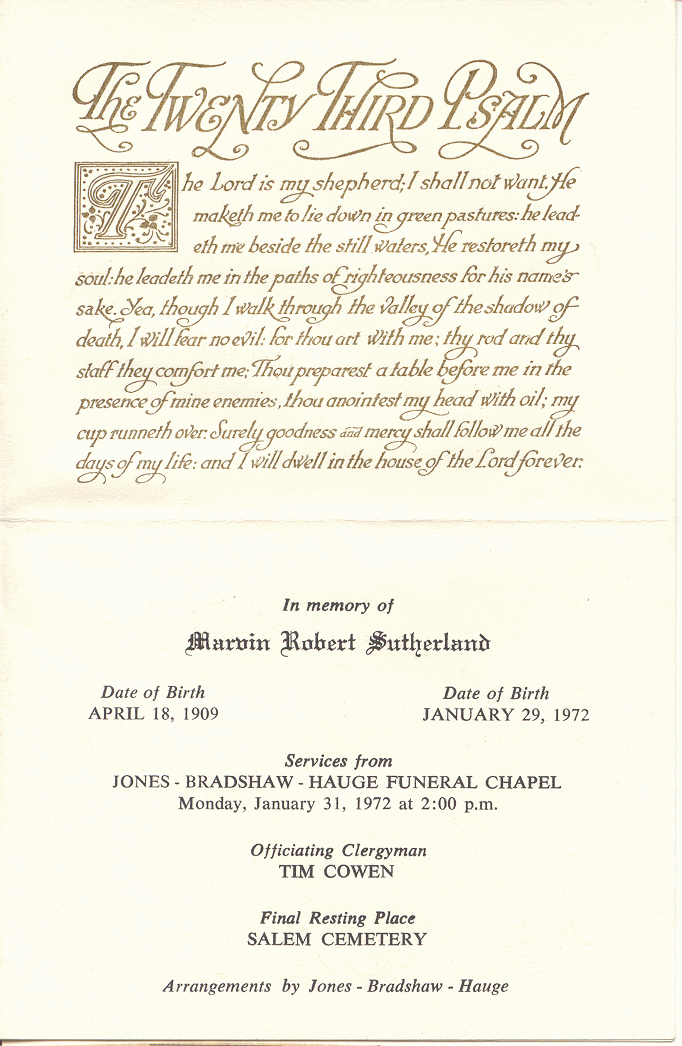 The Twenty Third Psalm
The Lord is my shepherd; I shall not want. He
maketh me to lie down in green pastures: he lead-
eth me beside the still waters, He restoreth my
soul: he leadeth me in the paths of righteousness for his name's
sake. Yea, though I walk through the valley of the shadow of
death, I will fear no evil: for thou art with me; thy rod and thy
staff they comfort me; Thou preparest a table before me in the
presence of mine enemies, thou anointest my head with oil; my
cup runneth over. Surely goodness and mercy shall follow me all the
days of my life: and I will dwell in the house of the Lord forever.
In memory of
Marvin Robert Sutherland
Date of Birth
APRIL 18, 1909
Date of Birth
JANUARY 29, 1972
Services from
JONES - BRADSHAW - HAUGE FUNERAL CHAPEL
Monday, January 31, 1972 at 2:00 p.m.
Officiating Clergyman
TIM COWEN
Final Resting Place
SALEM CEMETERY
Arrangements by Jones - Bradshaw - Hauge